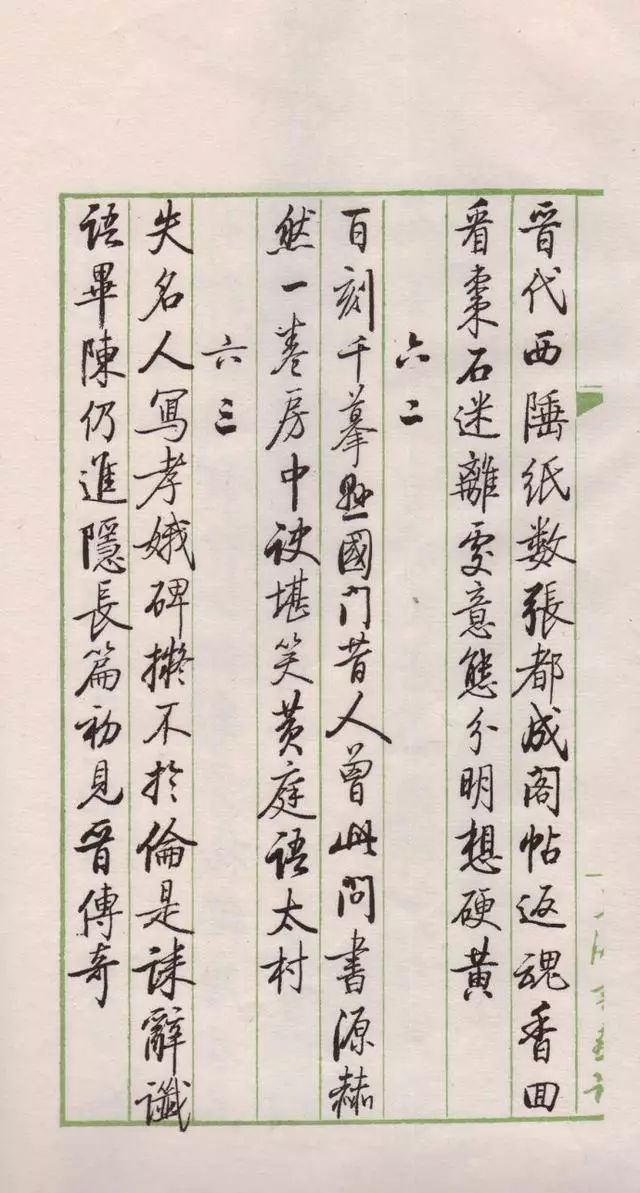 晋代西陲纸数張都成阁帖返魂香回
看棗石迷離處意態分明想硬黄
六二
百刻千摹悬國门昔人曾此问書源赫
然一卷房中诀堪笑黄庭语太村
六三
失名人寫孝娥碑擬不於倫是誄辭讖
语畢陳仍進隱長篇初見晋傳奇